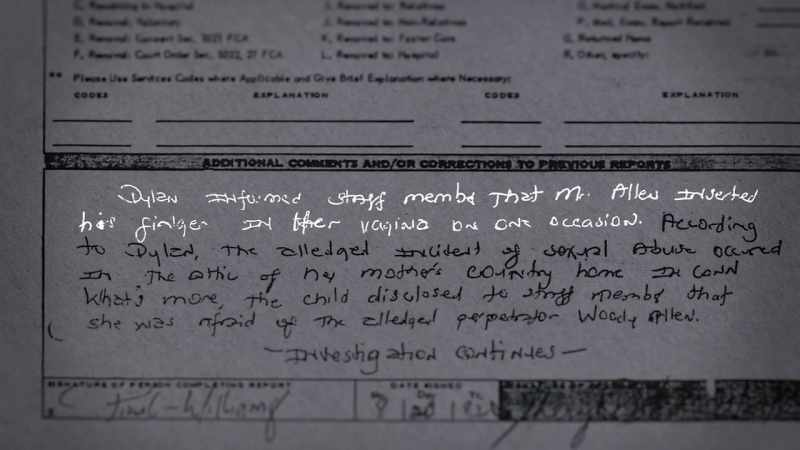 C. Remaining in Hospital I. Returned to Relatives O. Medical Exam, Notified
D. Removal, Voluntary J. Returned to Non-Relatives P. Med. Exam, Report Received
E. Removal: Consent Sec. 1021 FCA K. Returned to Foster Care Q. Returned Home
F. Removal: Court Order Sec. 1022, 27 FCA L. Returned to Hospital R. Other, specify:
** Please Use Services Codes where Applicable and Give Brief Explanation where Necessary:
CODES EXPLANATION CODES EXPLANATION
ADDITIONAL COMMENTS AND/OR CORRECTIONS TO PREVIOUS REPORTS
Dylan informed staff membe that Mr. Allen inserted
his finger in her vagina on one occasion. According
to Dylan, the alledged incident of sexual abuse occured
in the attic of her mother's country home in Conn
What's more, the child disclosed to staff membe that
she was afraid of the alledged perpetrator Woody Allen.
— Investigation continues —
SIGNATURE OF PERSON COMPLETING REPORT DATE SIGNED
Williams 8 20